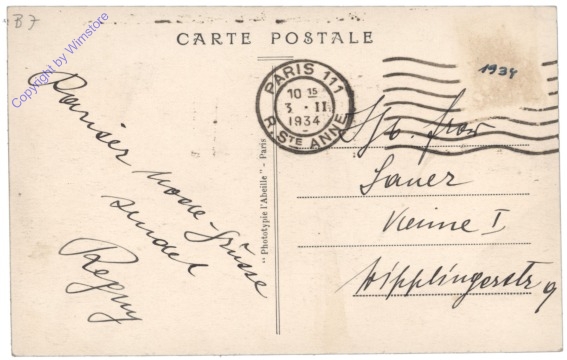 B7
Copyright by Wimstore
CARTE POSTALE
1934
PARIS 111
10 15
3 · II
1934
R. STE ANNE
Pariser Mode-Grüsse
sendet
"Phototypie l'Abeille" - Paris
Frau
Sauer
Vienne I
Wipplingerstr 9